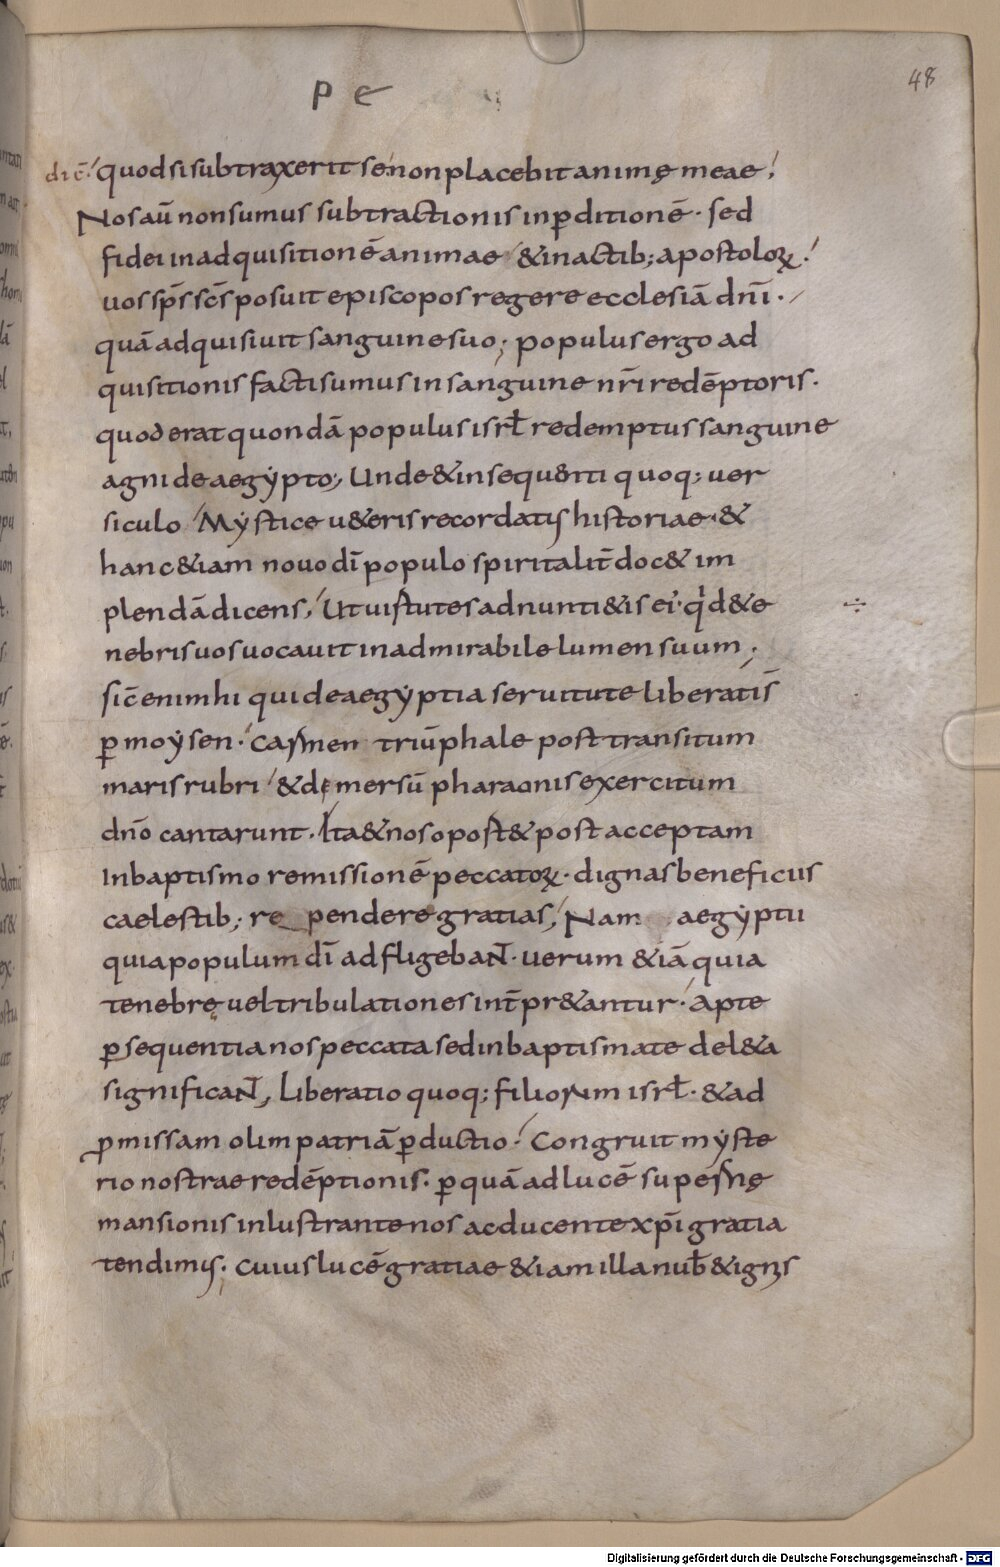 p e
48
dic̄ quod si subtraxerit se non placebit animę meae;
Nos aū non sumus subtractionis in p̱ditionē· sed
fidei in adquisitionē animae & in actib; apostoloꝝ·
uos sp̄s sc̄s posuit episcopos regere ecclesiā dn̄i·
quā adquisiuit sanguine suo; populus ergo ad
quisitionis facti sumus in sanguine nr̄i redēptoris·
quod erat quondā populus isrł redemptus sanguine
agni de aegẏpto; Unde & in sequ&nti quoq; uer
siculo Mẏstice u&eris recordatꝰ historiae·&
hanc &iam nouo dī populo spiritalit̄ doc& im
plendā dicens; Ut uirtutes adnunti&is ei·qͥ d&e
nebris uos uocauit in admirabile lumen suum;
sic̄ enim hi qui de aegẏptia seruitute liberati s̄
ꝑ moẏsen· Carmen triūphale post transitum
maris rubri & demersū pharaonis exercitum
dn̄o cantarunt· Ita & nos oport& post acceptam
In baptismo remissionē peccatoꝝ· dignas beneficiis
caelestib; re pendere gratias; Nam aegẏptii
quia populum dī adfligebaNT· uerum &iā quia
tenebrę uel tribulationes int̄pr&antur· Apte
ꝑsequentia nos peccata sed in baptismate del&a
significaNT; Liberatio quoq; filiorum isrł· & ad
ꝓmissam olim patriā ꝑductio· Congruit mẏste
rio nostrae redēptionis· ꝑ quā ad lucē supernę
mansionis inlustrante nos ac ducente xp̄i gratia
tendimꝰ; Cuius lucē gratiae &iam illa nub̄ & ignis
Digitalisierung gefördert durch die Deutsche Forschungsgemeinschaft - DFG